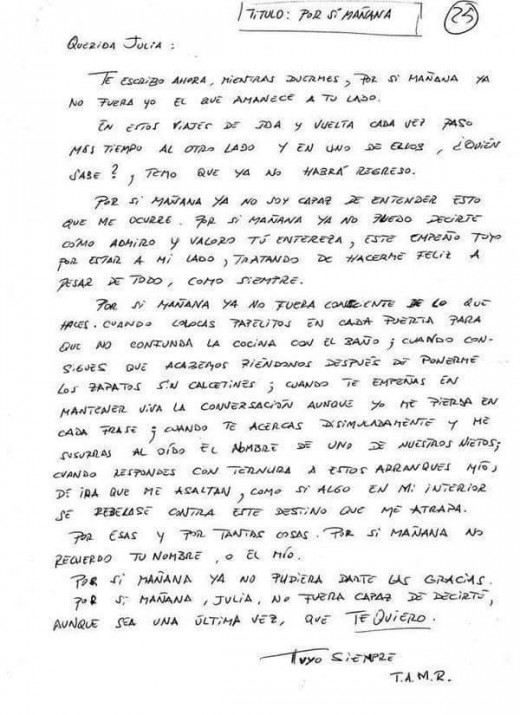 TITULO: POR SI MAÑANA
25
QUERIDA JULIA:
TE ESCRIBO AHORA, MIENTRAS DUERMES, POR SI MAÑANA YA
NO FUERA YO EL QUE AMANECE A TU LADO.
EN ESTOS VIAJES DE IDA Y VUELTA CADA VEZ PASO
MÁS TIEMPO AL OTRO LADO Y EN UNO DE ELLOS, ¿QUIÉN
SABE?, TEMO QUE YA NO HABRÁ REGRESO.
POR SI MAÑANA YA NO SOY CAPAZ DE ENTENDER ESTO
QUE ME OCURRE. POR SI MAÑANA YA NO PUEDO DECIRTE
CÓMO ADMIRO Y VALORO TÚ ENTEREZA, ESTE EMPEÑO TUYO
POR ESTAR A MI LADO, TRATANDO DE HACERME FELIZ A
PESAR DE TODO, COMO SIEMPRE.
POR SI MAÑANA YA NO FUERA CONSCIENTE DE LO QUE
HACES. CUANDO COLOCAS PAPELITOS EN CADA PUERTA PARA
QUE NO CONFUNDA LA COCINA CON EL BAÑO; CUANDO CON-
SIGUES QUE ACABEMOS RIÉNDONOS DESPUÉS DE PONERME
LOS ZAPATOS SIN CALCETINES; CUANDO TE EMPEÑAS EN
MANTENER VIVA LA CONVERSACIÓN AUNQUE YO ME PIERDA EN
CADA FRASE; CUANDO TE ACERCAS DISIMULADAMENTE Y ME
SUSURRAS AL OÍDO EL NOMBRE DE UNO DE NUESTROS NIETOS;
CUANDO RESPONDES CON TERNURA A ESTOS ARRANQUES MÍOS
DE IRA QUE ME ASALTAN, COMO SI ALGO EN MI INTERIOR
SE REBELASE CONTRA ESTE DESTINO QUE ME ATRAPA.
POR ESAS Y POR TANTAS COSAS. POR SI MAÑANA NO
RECUERDO TU NOMBRE, O EL MÍO.
POR SI MAÑANA YA NO PUDIERA DARTE LAS GRACIAS.
POR SI MAÑANA, JULIA, NO FUERA CAPAZ DE DECIRTE,
AUNQUE SEA UNA ÚLTIMA VEZ, QUE TE QUIERO.
TUYO SIEMPRE
T.A.M.R.